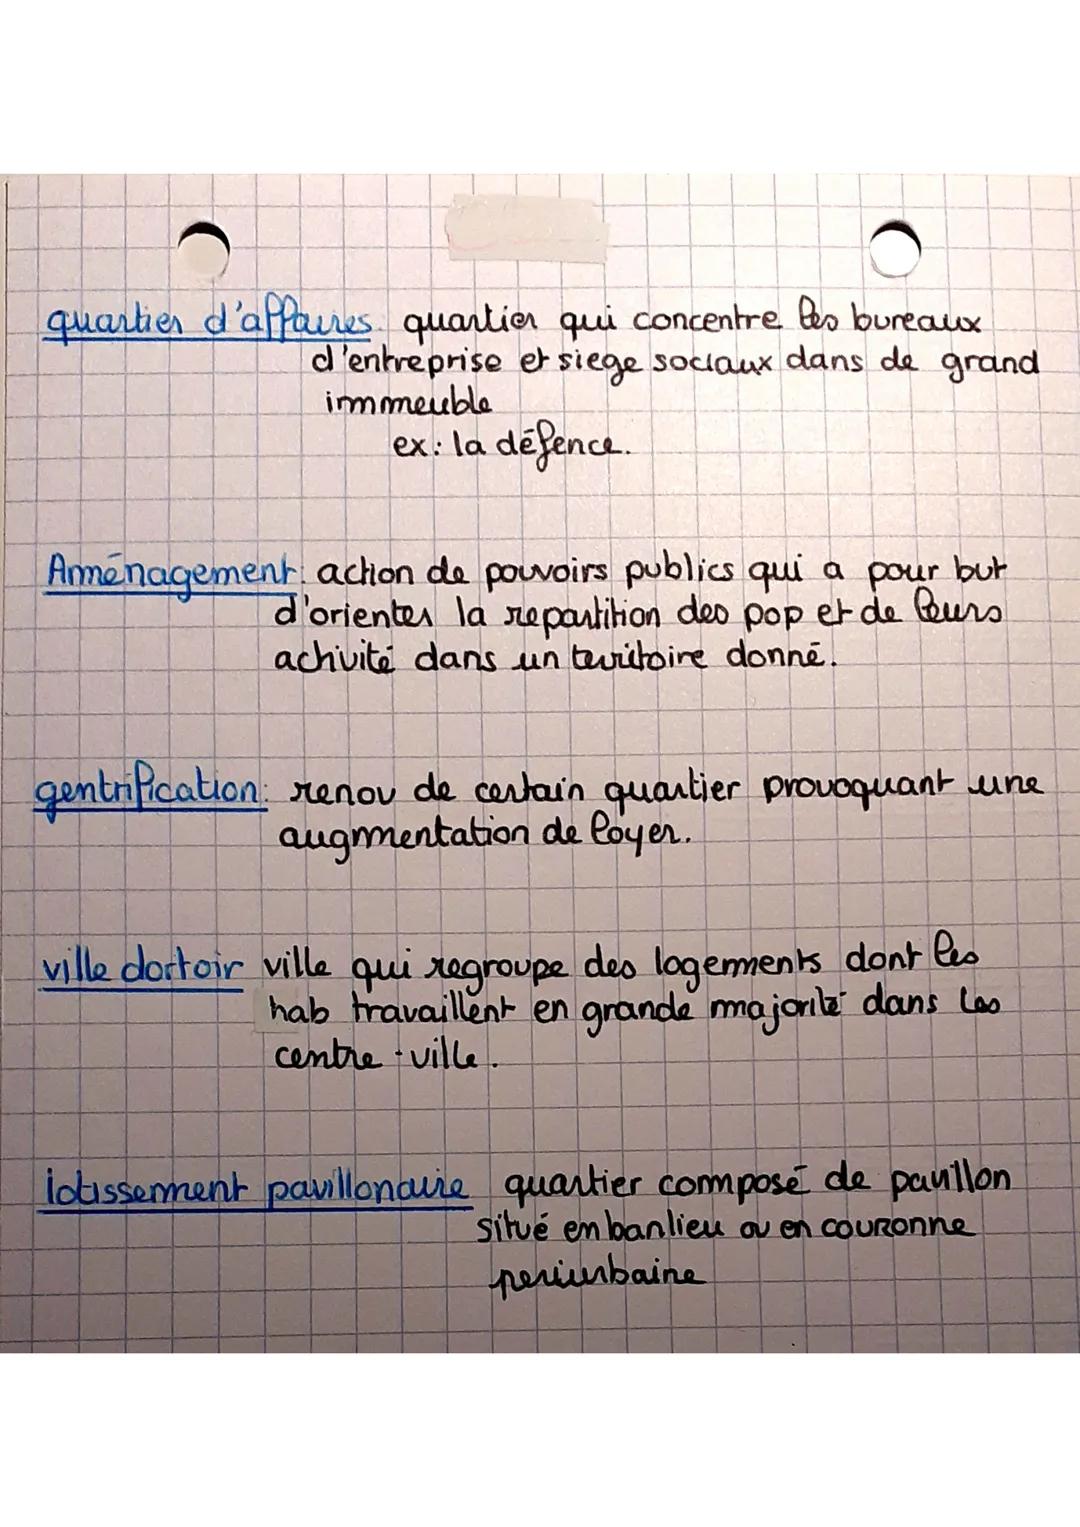 quartier d'affaires. quartier qui concentre les bureaux
d'entreprise et siege sociaux dans de grand
immeuble
ex: la défence.
Aménagement: action de pouvoirs publics qui a pour but
d'orienter la repartition des pop et de leurs
activité dans un territoire donné.
gentrification: renov de certain quartier provoquant une
augmentation de loyer.
ville dortoir ville qui regroupe des logements dont les
hab travaillent en grande majorité dans les
centre-ville.
lotissement pavillonaire quartier composé de pavillon
situé en banlieu ou en couronne
periurbaine